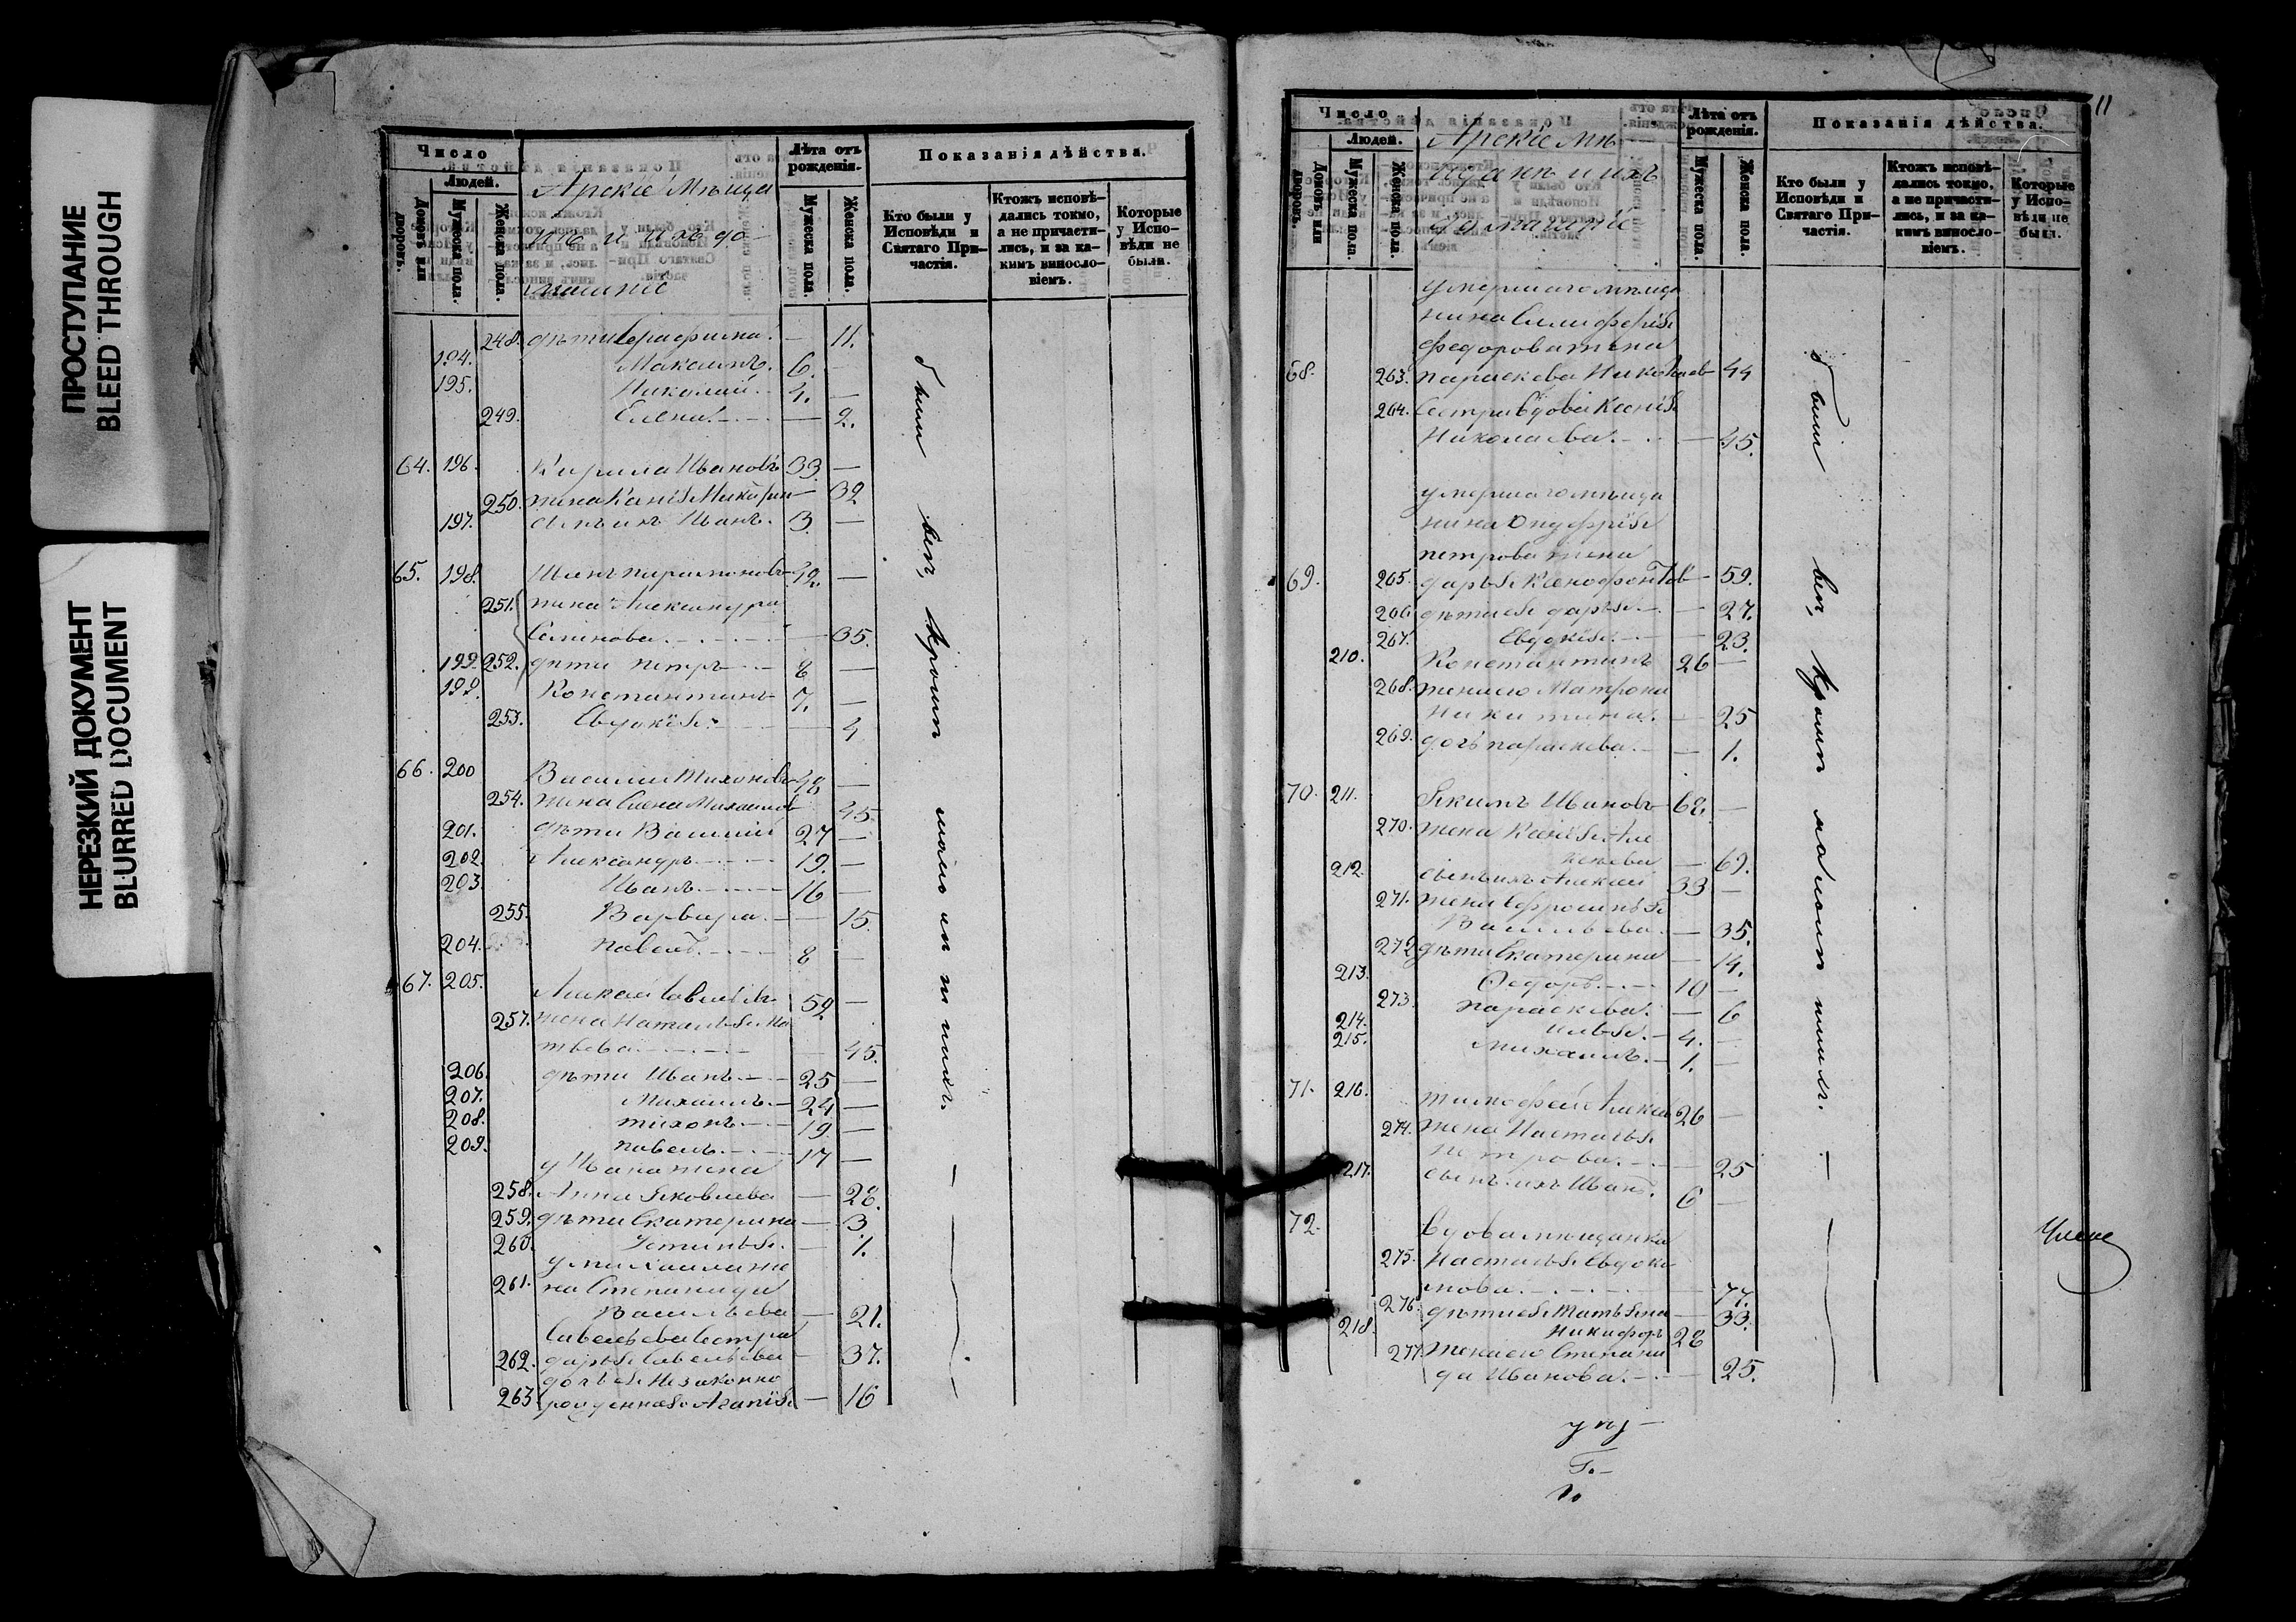 ПРОСТУПАНИЕ
BLEED THROUGH
НЕРЕЗКИЙ ДОКУМЕНТ
BLURRED DOCUMENT
Число
Людей.
Домовъ или дворовъ.
Мужеска пола.
Женска пола.
Арскіе Мѣща
не и ихъ до-
машніе
Лѣта отъ рожденія.
Мужеска пола.
Женска пола.
Показанія дѣйства.
Кто были у Исповѣди и Святаго При-
частія.
Ктожъ исповѣ-
дались токмо,
а не причасти-
лись, и за ка-
кимъ виносло-
віемъ.
Которые
у Испо-
вѣди не
были.
248. дѣти Серафима. — 11.
194. Максимъ. 6. —
195. Николай. 4. —
249. Елена. — 2.
64. 196. Кирила Ивановъ 33. —
250. жена Ксенія — 32
197. сынъ ихъ Иванъ. 3. —
65. 198. Иванъ 42. —
251. жена Александра
— 35.
199. 252. дѣти Петръ 8 —
199. Константинъ 7. —
253. Евдокія — 4
66. 200 Василій Тихоновъ 48 —
254. жена Елена Михайлов 45.
201. дѣти Василій 27 —
202. Александръ 19. —
203. Иванъ 16 —
255. Варвара — 15.
204. Павелъ 8 —
67. 205. Алексѣй Савельевъ 52 —
257. жена Наталья Ма
твева — 45.
206. дѣти Иванъ 25 —
207. Михаилъ. 24 —
208. Тихонъ 19. —
209. Павелъ. 17 —
у Ивана жена
258. Анна Яковлева — 28.
259. дѣти Екатерина — 3.
260. Устинья. — 1.
у Михаила же
261. на Степанида
Васильева — 21.
Савельева сестра
262. Дарья Савельева — 37.
дочь ея незаконно
263 рожденная Агапія — 16
были все, кромѣ малолѣтнихъ.
11
Число
Людей.
Домовъ или дворовъ.
Мужеска пола.
Женска пола.
Арскіе Мѣ-
щане и ихъ
домашніе
Лѣта отъ рожденія.
Мужеска пола.
Женска пола.
Показанія дѣйства.
Кто были у
Исповѣди и
Святаго При-
частія.
Ктожъ исповѣ-
дались токмо,
а не причасти-
лись, и за ка-
кимъ виносло-
віемъ.
Которые
у Испо-
вѣди не
были.
умершаго мѣща
нина
Федорова жена
68. 263. Параскева Николаев 44
264. Сестра вдова Ксенія
Николаева. — 45.
умершаго мѣща
нина Онуфрія
Петрова жена
69. 265. Дарья Ксенофонтов — 59.
266 дѣти ея Дарья. — 27.
267. Евдокія. — 23.
210. Константинъ 26 —
268. жена его Матрона
Никитина. — 25
269. дочь Параскева. — 1.
70. 211. Якимъ Ивановъ 68. —
270. жена Ксенія Але
ксѣева — 69.
212. сынъ ихъ Алексѣй 33 —
271. жена Ефросинья
Васильева. — 35.
272 дѣти Екатерина — 14.
213. Ѳедоръ. 10 —
273. Параскева. — 6
214. Илья. 4. —
215. Михаилъ. 1. —
71. 216. Тимофей Алексѣ 26 —
274. жена Настасья
Петрова. — 25
217. сынъ ихъ Иванъ. 6 —
72. вдова мѣщанка
275. Настасья Евдоки
мова. — 77.
276. дѣти ея Татьяна — 33.
218. Никифоръ 28
277. жена его Степани
да Иванова. — 25.
были все, кромѣ малолѣтнихъ.